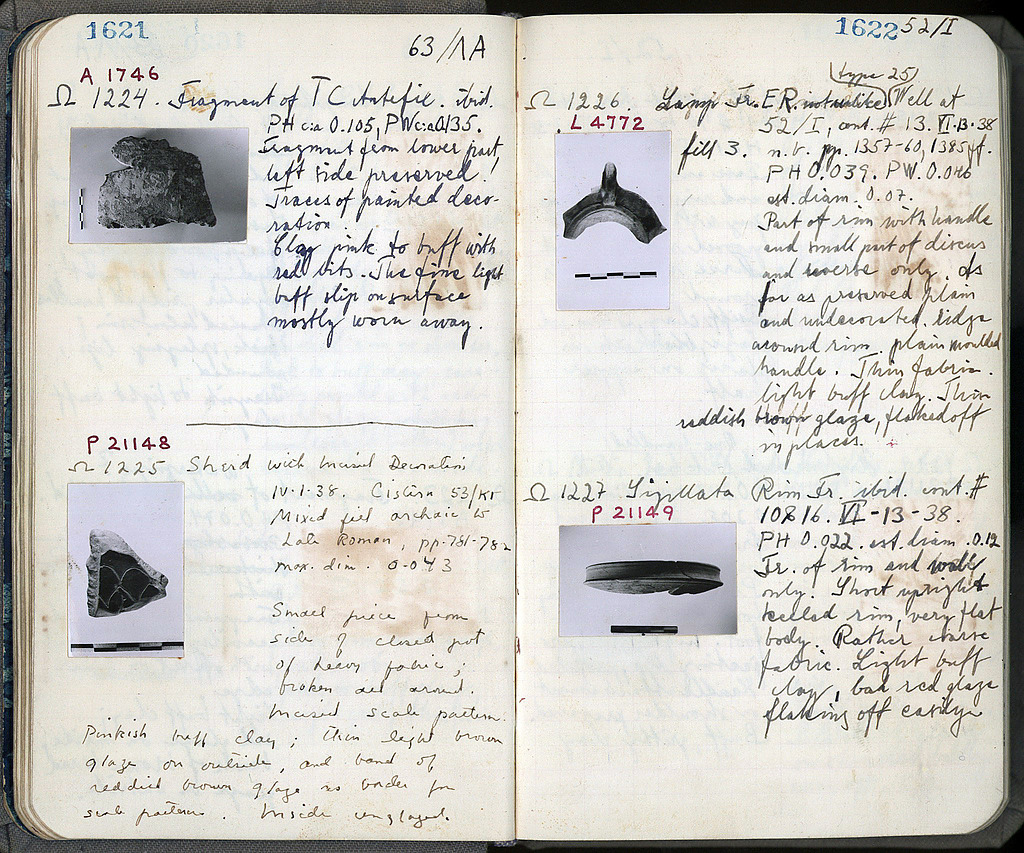 1621
63/ΛΑ
A 1746
Ω 1224. Fragment of TC Antefix. ibid.
PH c:a 0.105, PW c:a 0.135.
Fragment from lower part,
left side preserved.
Traces of painted deco-
ration
Clay pink to buff with
red bits. The fine light
buff slip on surface
mostly worn away.
P 21148
Ω 1225 Sherd with Incised Decoration
IV.1.38. Cistern 53/ΚΓ
Mixed fill archaic to
Late Roman, pp. 781-782
max. dim. 0.043
Small piece from
side of closed pot
of heavy fabric;
broken all around.
Incised scale pattern.
Pinkish buff clay; thin light brown
glaze on outside, and band of
reddish brown glaze as border for
scale pattern. Inside unglazed.
1622 52/I
(type 25)
Ω 1226. Lamp Fr. ER. not unlike Well at
L 4772
52/I, cont. # 13. VI-13-38
fill 3. n.b. pp. 1357-60, 1385 ff.
PH 0.039. PW. 0.046
est. diam. 0.07.
Part of rim with handle
and small part of discus
and reverse only. As
far as preserved plain
and undecorated. ridge
around rim. plain moulded
handle. Thin fabric.
light buff clay. Thin
reddish brown glaze, flaked off
in places.
Ω 1227 Sigillata Rim Fr. ibid. cont. #
P 21149
10 & 16. VI-13-38.
PH 0.022. est. diam. 0.12
Fr. of rim and wall
only. Short upright
keeled rim, very flat
body. Rather coarse
fabric. Light buff
clay, bad red glaze
flaking off easily